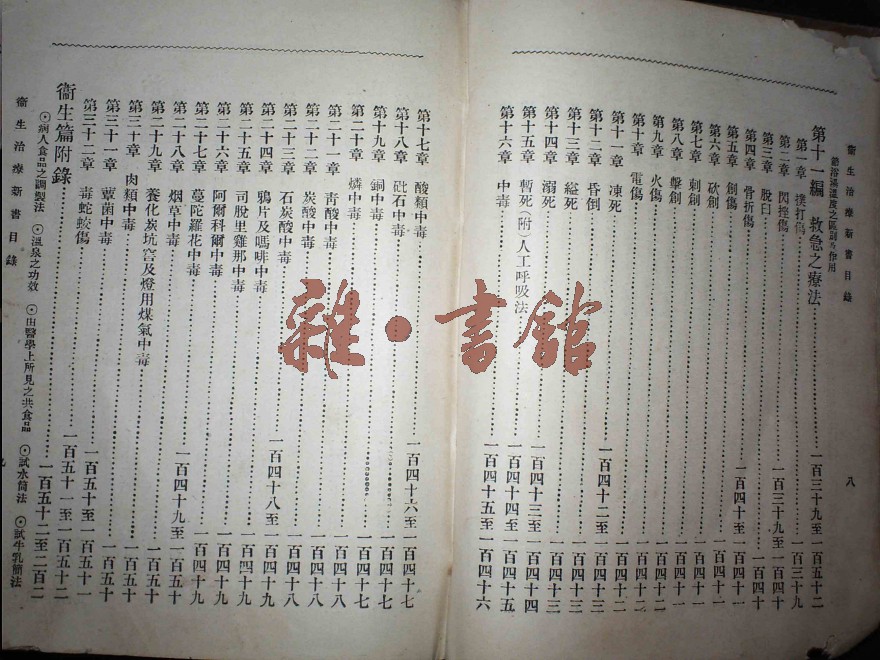 衞生治療新書目錄
八
第十一編 救急之療法……一百三十九至一百五十二
第一章 撲打傷……一百三十九
第二章 閃挫傷……一百三十九至一百四十
第三章 脫臼……一百四十
第四章 骨折傷……一百四十至一百四十一
第五章 創傷……一百四十一
第六章 砍創……一百四十一
第七章 刺創……一百四十一
第八章 擊創……一百四十一
第九章 火傷……一百四十二
第十章 電傷……一百四十二
第十一章 凍死……一百四十二
第十二章 昏倒……一百四十二至一百四十三
第十三章 縊死……一百四十三
第十四章 溺死……一百四十三至一百四十四
第十五章 暫死(附)人工呼吸法……一百四十四至一百四十五
第十六章 中毒……一百四十五至一百四十六
第十七章 酸類中毒……一百四十六至一百四十七
第十八章 砒石中毒……一百四十七
第十九章 銅中毒……一百四十七
第二十章 燐中毒……一百四十七
第二十一章 靑酸中毒……一百四十八
第二十二章 炭酸中毒……一百四十八
第二十三章 石炭酸中毒……一百四十八
第二十四章 鴉片及嗎啡中毒……一百四十八至一百四十九
第二十五章 司脫里雞那中毒……一百四十九
第二十六章 阿爾科爾中毒……一百四十九
第二十七章 蔓陀羅花中毒……一百四十九
第二十八章 烟草中毒……一百四十九至一百五十
第二十九章 養化炭坑窖及燈用煤氣中毒……一百五十
第三十章 肉類中毒……一百五十
第三十一章 蕈菌中毒……一百五十
第三十二章 毒蛇蛟傷……一百五十至一百五十一
衞生篇附錄……一百五十一至一百五十二
⊙病人食品之調製法 ⊙溫泉之功效 ⊙由醫學上所見之共食品 ⊙試水簡法 ⊙試牛乳簡法……一百五十二至二百二
衞生治療新書目錄
九
雜·書館